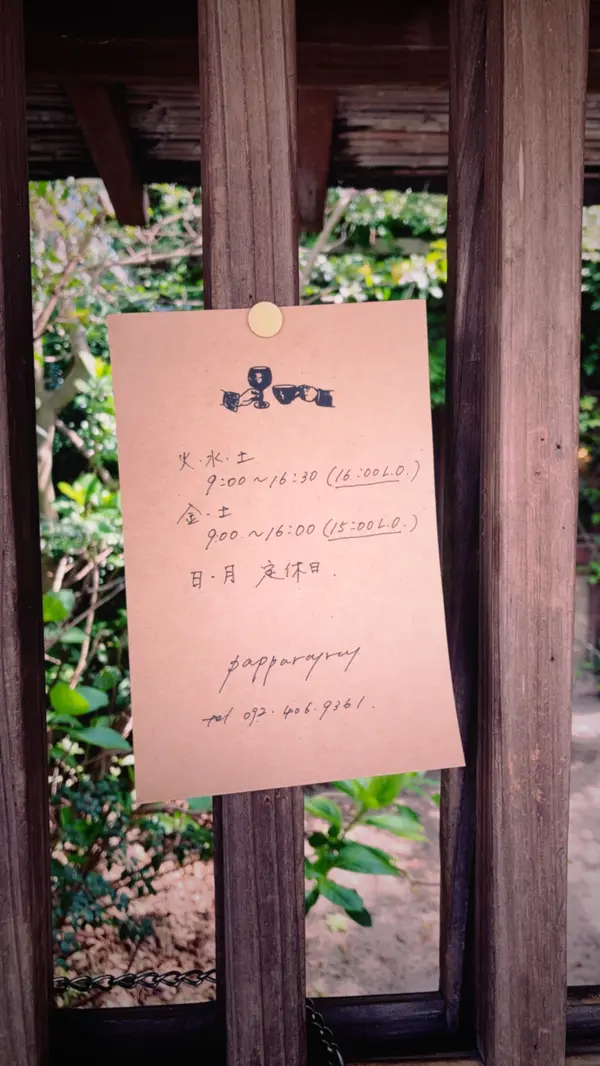 火.水.土
9:00〜16:30 (16:00L.O.)
金.土
9:00〜16:00 (15:00L.O.)
日.月 定休日.
papparayray
tel 092.406.9361.